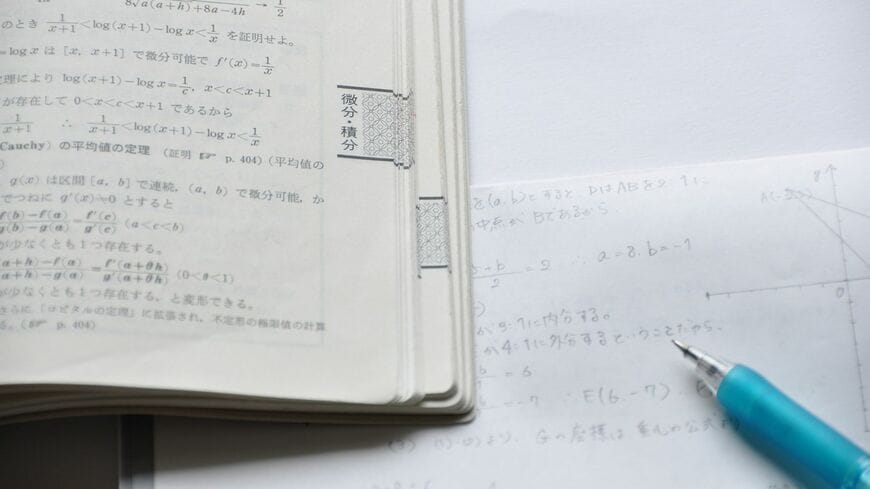 8√a(a+h)+8a−4h → 1/2
のとき 1/(x+1)<log(x+1)−log x<1/x を証明せよ。
=log x は [x, x+1] で微分可能で f′(x)=1/x
定理により log(x+1)−log x=1/c, x<c<x+1
が存在して 0<x<c<x+1 であるから
1/(x+1) ∴ 1/(x+1)<log(x+1)−log x<1/x
Cauchy) の平均値の定理 (証明 ☞ p. 404) (平均値の
g(x) は区間 [a, b] で連続, (a, b) で微分可能, か
でつねに g′(x)≠0 とすると
f(b)−f(a)/g(b)−g(a)=f′(c)/g′(c) (a<c<b)
が少なくとも1つ存在する。
(a+h)−f(a)/(a+h)−g(a)=f′(a+θh)/g′(a+θh) (0<θ<1)
が少なくとも1つ存在する, と変形できる。
さらに,「ロピタルの定理」に拡張され, 不定形の極限値の計算
る。(☞ p. 404)
微分・積分
を(a, b)とすると, DはABを2:1に
中点が Bであるから
5+b/2=2 ∴ a=8. b=-1
に内分する。
が4:1に外分するということだから、
=6
=-7 ∴ E(6.-7)
(3) (1)(2)より、Gの座標は重心の公式より
y
O